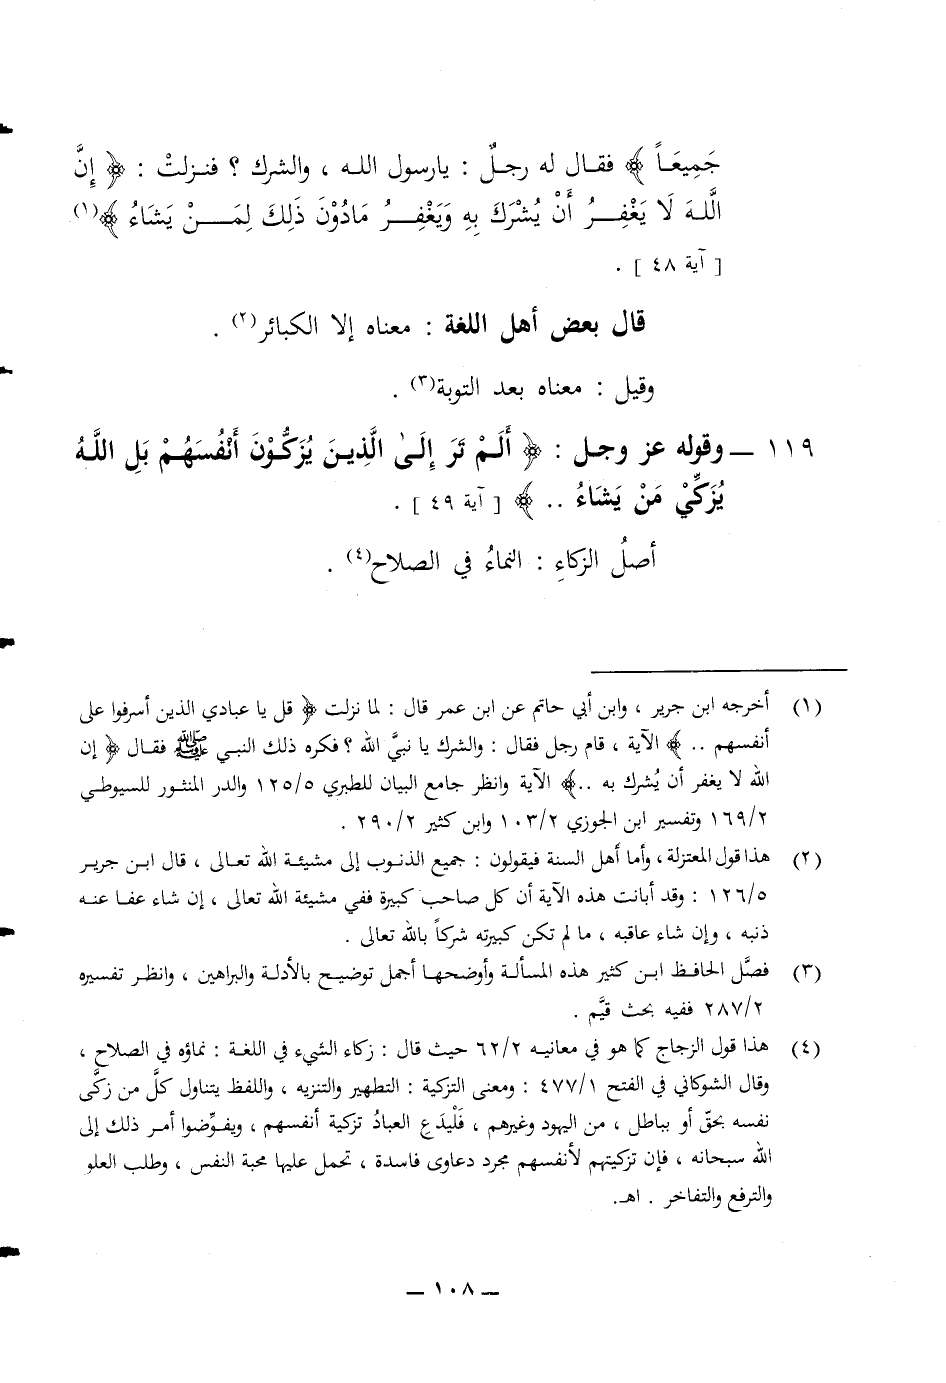 جَمِيعَاً ﴾ فقـال له رجـلٌ : يارسول اللـه ، والشرك ؟ فنـزلتْ : ﴿ إِنَّ
اللَّـهَ لَا يَغْفِـرُ أَنْ يُشْرَكَ بِهِ وَيَغْفِـرُ مَادُوْنَ ذَلِكَ لِمَـنْ يَشَاءُ ﴾(١)
[ آية ٤٨ ] .
قال بعض أهل اللغة : معناه إلا الكبائر(٢) .
وقيل : معناه بعد التوبة(٣) .
١١٩ ــ وقوله عز وجـل : ﴿ أَلَـمْ تَرَ إِلَىٰ الَّذِيـنَ يُزَكُّوْنَ أَنْفُسَهُـمْ بَلِ اللَّـهُ
يُزَكِّيْ مَنْ يَشَاءُ .. ﴾ [ آية ٤٩ ] .
أصلُ الزكاءِ : النماءُ في الصلاح(٤) .
(١) أخرجه ابن جرير ، وابن أبي حاتم عن ابن عمر قال : لما نزلت ﴿ قل يا عبادي الذين أسرفوا على
أنفسهم .. ﴾ الآية ، قام رجل فقال : والشرك يا نبيَّ الله ؟ فكره ذلك النبـي ﷺ فقـال ﴿ إن
الله لا يغفر أن يُشرك به ..﴾ الآية وانظر جامع البيان للطبري ١٢٥/٥ والدر المنثـور للسيوطـي
١٦٩/٢ وتفسير ابن الجوزي ١٠٣/٢ وابن كثير ٢٩٠/٢ .
(٢) هذا قول المعتزلة ، وأما أهل السنة فيقولون : جميع الذنـوب إلى مشيئـة الله تعـالى ، قال ابـن جريـر
١٢٦/٥ : وقد أبانت هذه الآية أن كل صاحب كبيرة ففي مشيئة الله تعالى ، إن شاء عفـا عنـه
ذنبه ، وإن شاء عاقبه ، ما لم تكن كبيرته شركاً بالله تعالى .
(٣) فصَّل الحافـظ ابـن كثير هذه المسألـة وأوضحهـا أجمل توضيـح بالأدلـة والبراهين ، وانظـر تفسيره
٢٨٧/٢ ففيه بحث قيَّم .
(٤) هذا قول الزجاج كما هو في معانيـه ٦٢/٢ حيث قال : زكاء الشيء في اللغـة : نماؤه في الصلاح ،
وقال الشوكاني في الفتح ٤٧٧/١ : ومعنى التزكية : التطهير والتنزيه ، واللفظ يتناول كلَّ من زكَّى
نفسه بحقّ أو بباطل ، من اليهود وغيرهم ، فَلْيَدَعِ العبادُ تزكية أنفسهم ، ويفـوِّضوا أمـر ذلك إلى
الله سبحانه ، فإن تزكيتهم لأنفسهم مجرد دعاوى فاسدة ، تحمل عليها محبة النفس ، وطلب العلو
والترفع والتفاخر . اهـ.
ــ ١٠٨ ــ